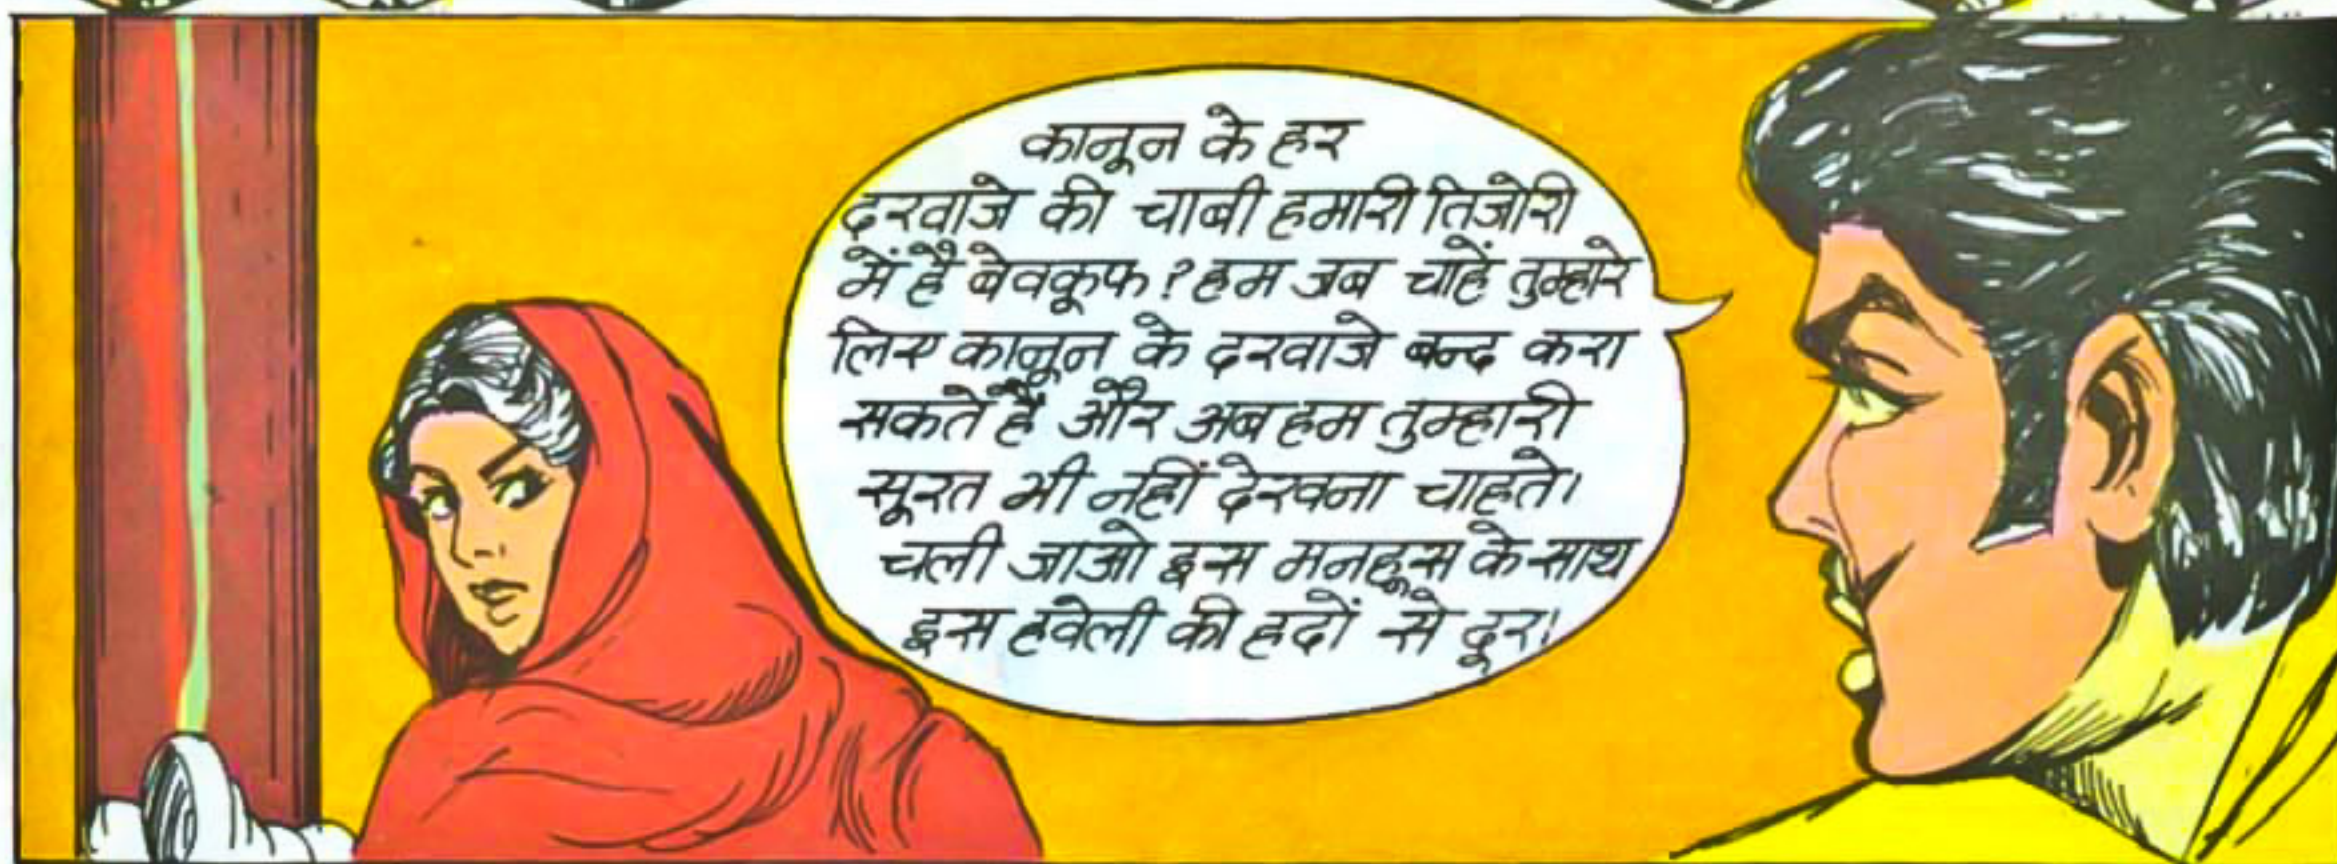 कानून के हर
दरवाजे की चाबी हमारी तिजोरी
में है बेवकूफ? हम जब चाहें तुम्हारे
लिए कानून के दरवाजे बन्द करा
सकते हैं और अब हम तुम्हारी
सूरत भी नहीं देखना चाहते।
चली जाओ इस मनहूस के साथ
इस हवेली की हदों से दूर!